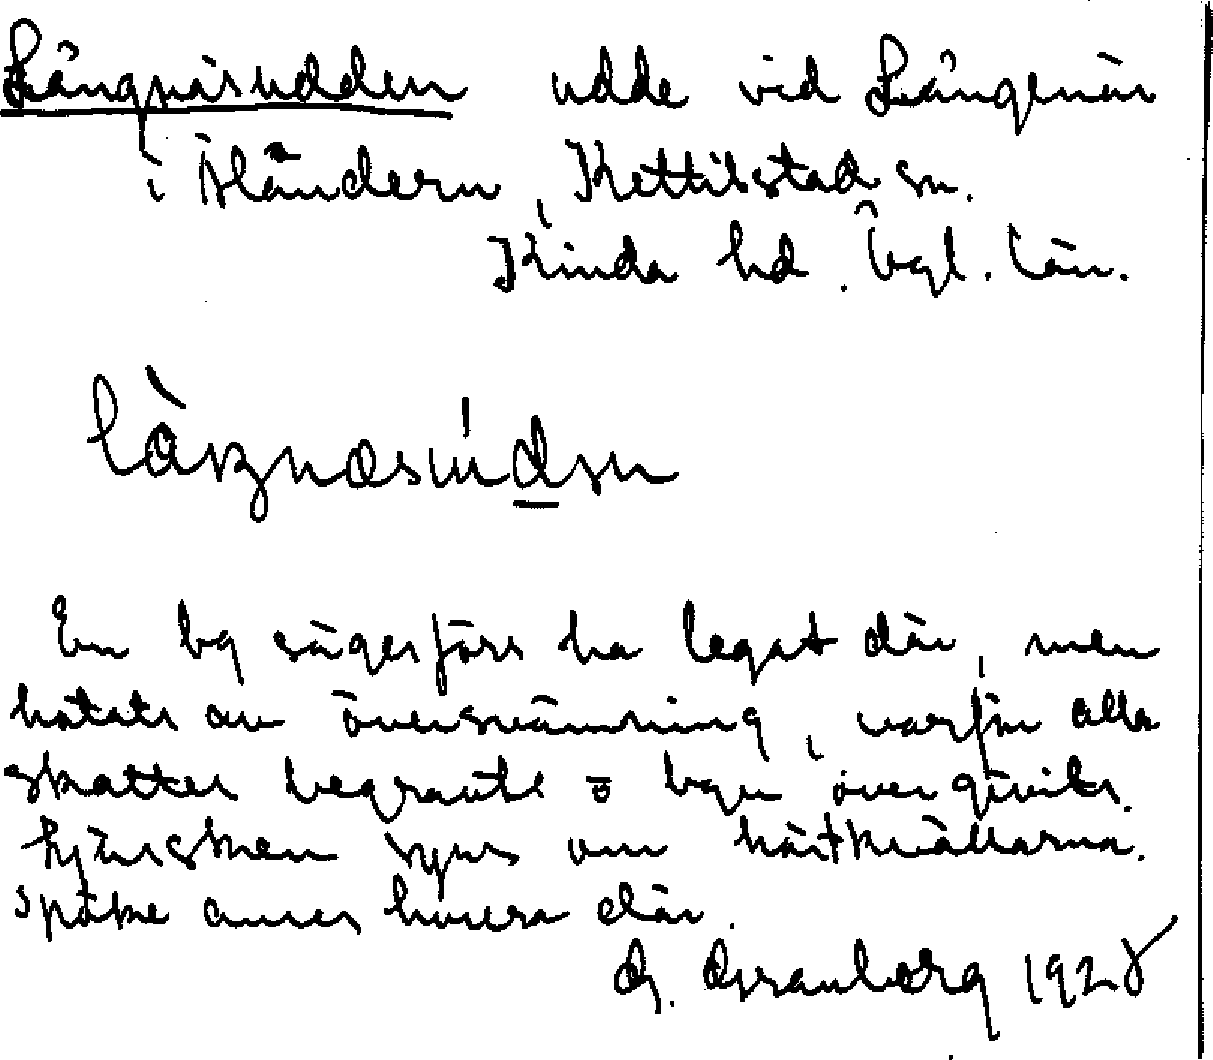 Långnäsudden udde vid Långenäs
i Åländern, Kettilstad sn.
Kinda hd. Ögl. län.
En by säges förr ha legat där, men
hotats av översvämning, varför alla
skatter begravts o byn övergivits.
Kjärsken synes om höstkvällarna.
Spöke anses husera där.
G. Granberg 1928